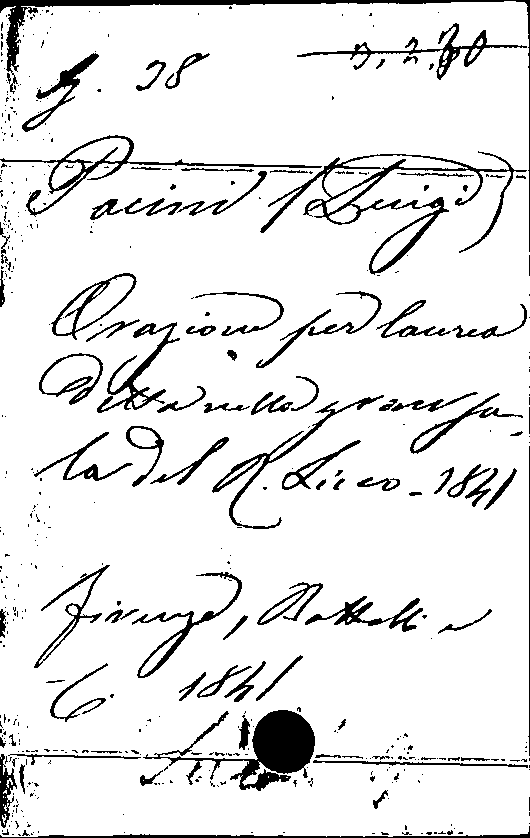 G. 38 3. 2. 30
Pacini (Luigi)
Orazione per laurea
detta nella gran sa-
la del R. Liceo - 1841
Firenze, Battelli e
C. 1841